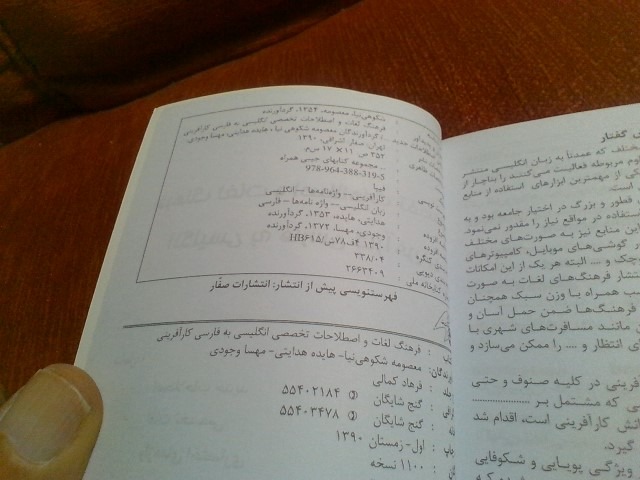 شکوهی‌نیا، معصومه، ۱۳۵۴، گردآورنده
فرهنگ لغات و اصطلاحات تخصصی انگلیسی به فارسی کارآفرینی
/ گردآورندگان معصومه شکوهی نیا، هایده هدایتی، مهسا وجودی.
تهران: صفار، اشراقی، ۱۳۹۰
۳۵۲ ص. ۱۱×۱۷ س‌م
مجموعه کتابهای جیبی همراه
978-964-388-319-5
فیپا
کارآفرینی -- واژه‌نامه‌ها -- انگلیسی
زبان انگلیسی -- واژه نامه‌ها -- فارسی
هدایتی، هایده، ۱۳۵۳، گردآورنده
وجودی، مهسا، ۱۳۷۲، گردآورنده
۱۳۹۰ ۴ف۷۸ش/HB۶۱۵
۳۳۸/۰۴
۲۶۶۳۴۰۹
فهرستنویسی پیش از انتشار: انتشارات صفّار
: فرهنگ لغات و اصطلاحات تخصصی انگلیسی به فارسی کارآفرینی
معصومه شکوهی‌نیا- هایده هدایتی- مهسا وجودی
: فرهاد کمالی
: گنج شایگان ۵۵۴۰۲۱۸۴
: گنج شایگان ۵۵۴۰۳۴۷۸
: اول- زمستان ۱۳۹۰
: ۱۱۰۰ نسخه
گفتار
مختلف که عمدتاً به زبان انگلیسی منتشر
مربوطه فعالیت می‌کنند را بناچار از
یکی از مهمترین ابزارهای استفاده از منابع
است.
قطور و بزرگ در اختیار جامعه بود و به
استفاده در مواقع نیاز را مقدور نمی‌نمود.
این منابع نیز به صورت‌های مختلف
گوشی‌های موبایل، کامپیوترهای
کوچک و .... البته هر یک از این امکانات
انتشار فرهنگ‌های لغات به صورت
همراه با وزن سبک همچنان
فرهنگ‌ها ضمن حمل آسان و
مانند مسافرت‌های شهری با
انتظار و .... را ممکن می‌سازد و
کارآفرینی در کلیه صنوف و حتی
که مشتمل بر ..................
دانش کارآفرینی است، اقدام شد
گیرد.
ویژگی پویایی و شکوفایی